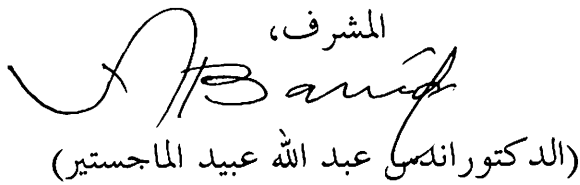 المشرف،
(الدكتوراندس عبد الله عبيد الماجستير)